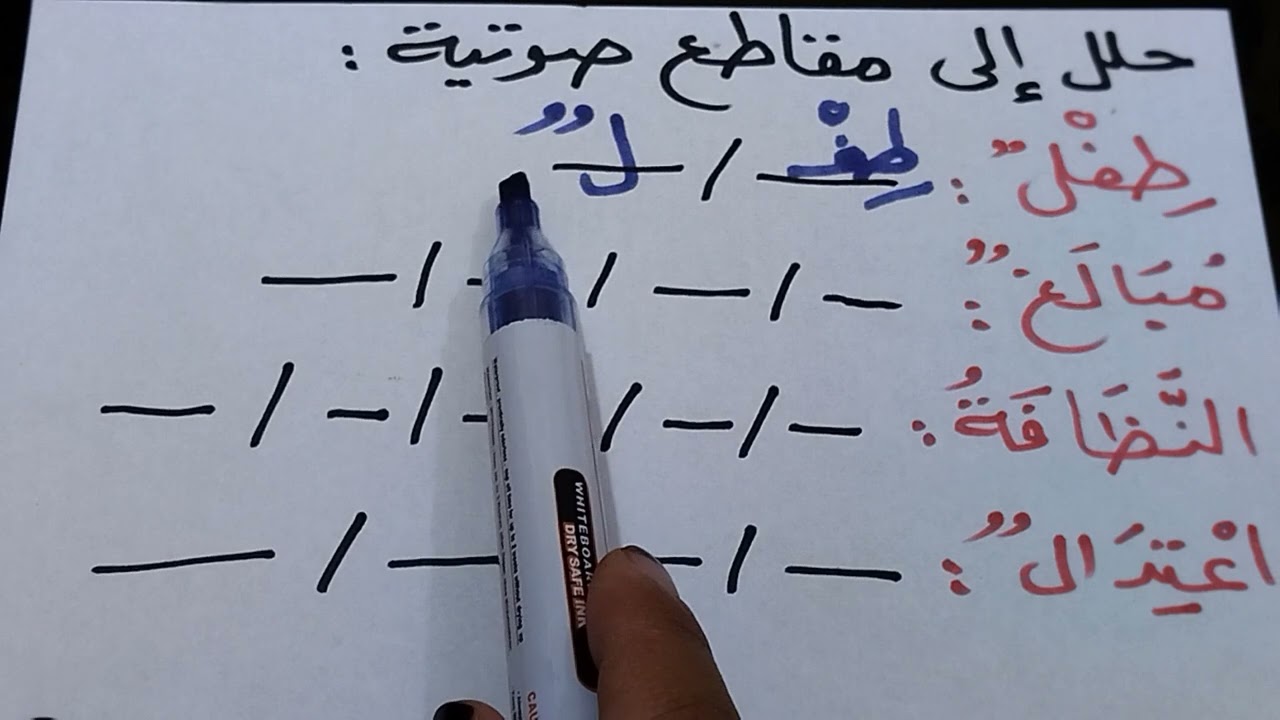 حلل إلى مقاطع صوتية :
طِفْلٌ : طِفْ / لٌ
مُبَالَغٌ : / / /
النَّظَافَةُ : / / / /
اعْتِدَالٌ : / / /
WHITEBOAR
DRYSAFE INK
CAU